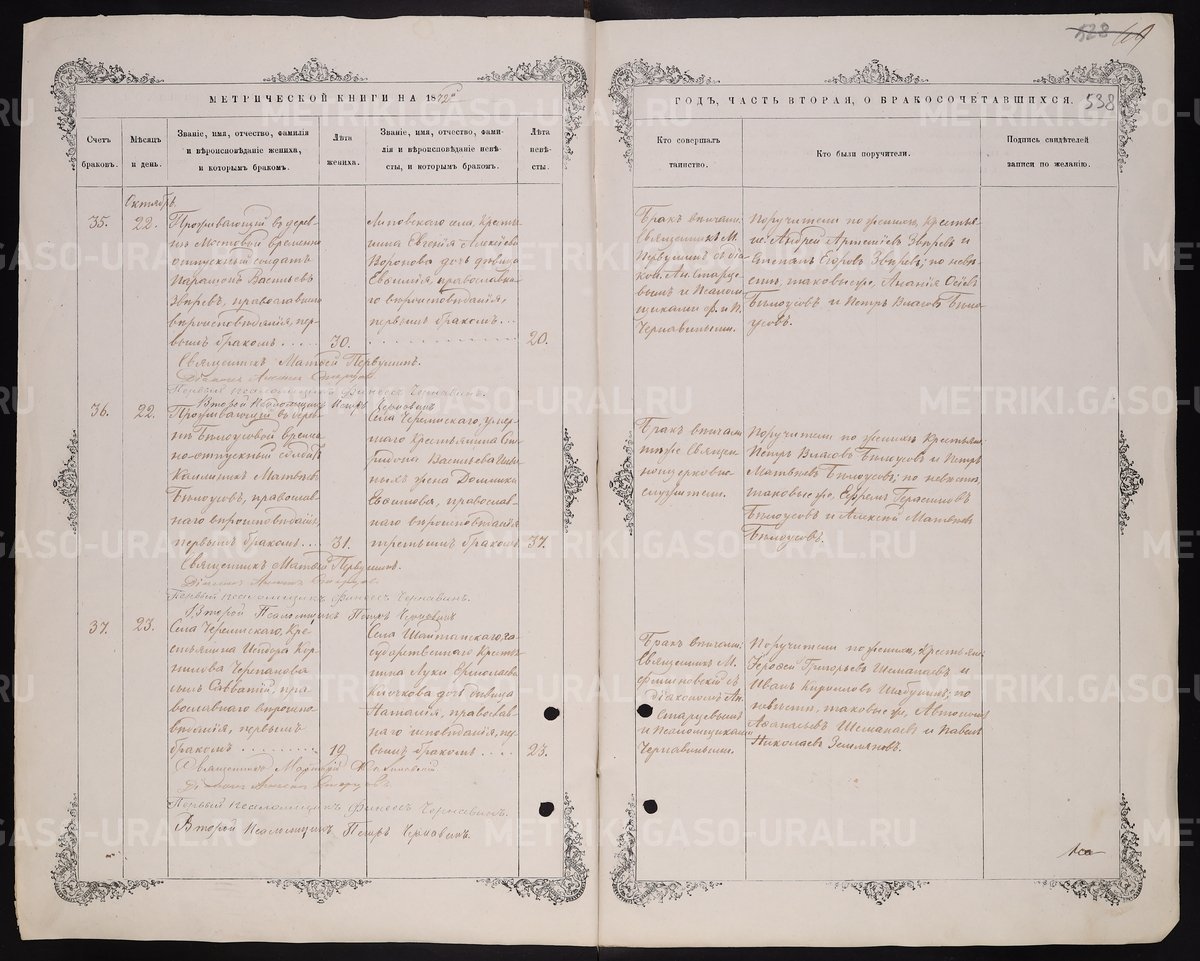 528 69
538
МЕТРИЧЕСКОЙ КНИГИ НА 1872й
ГОДЪ, ЧАСТЬ ВТОРАЯ, О БРАКОСОЧЕТАВШИХСЯ.
Счетъ браковъ.
Мѣсяцъ и день.
Званіе, имя, отчество, фамилія
и вѣроисповѣданіе жениха,
и которымъ бракомъ.
Лѣта
жениха.
Званіе, имя, отчество, фами-
лія и вѣроисповѣданіе невѣ-
сты, и которымъ бракомъ.
Лѣта
невѣ-
сты.
Кто совершалъ
таинство.
Кто были поручители.
Подпись свидѣтелей
записи по желанію.
Октябрь.
35.
22.
Проживающій въ дерев-
нѣ Мостовой временно
отпускный солдатъ
Парамонъ Васильевъ
Звѣревъ, православнаго
вѣроисповѣданія, пер-
вымъ бракомъ....
30.
Липовскаго села, Кресть-
янина Евгенія Алексѣева
Воронова дочь дѣвица
Евѳимія, православна-
го вѣроисповѣданія,
первымъ бракомъ...
20.
Бракъ вѣнчали:
Священникъ М.
Первушинъ съ діа-
кон. Ан. Старце-
вымъ и Псалом-
щиками Ф. и П.
Чернавиными.
Поручители по женихѣ, Крестья-
не: Андрей Артеміевъ Звѣревъ и
Степанъ Егоровъ Звѣревъ; по невѣ-
стѣ, таковые же, Ананія Осіевъ
Бѣлоусовъ и Петръ Власовъ Бѣло-
усовъ.
Священникъ Матѳей Первушинъ.
Діаконъ Старцевъ
Первый псаломщикъ Финеесъ Чернавинъ.
Второй Псаломщикъ Петръ Чернавинъ
36.
22.
Проживающій въ дерев-
нѣ Бѣлоусовой времен-
но-отпускный солдатъ
Каллиникъ Матвѣевъ
Бѣлоусовъ, православ-
наго вѣроисповѣданія,
первымъ бракомъ...
31.
Села Черемисскаго, умер-
шаго Крестьянина Спи-
ридона Васильева
жена Домника
православ-
наго вѣроисповѣданія
третьимъ бракомъ
37.
Бракъ вѣнчали
тѣ же Священ-
ноцерковно-
служители.
Поручители по женихѣ Крестьяне:
Петръ Власовъ Бѣлоусовъ и Петръ
Матвѣевъ Бѣлоусовъ; по невѣстѣ,
таковые же, Ефремъ Герасимовъ
Бѣлоусовъ и Алексѣй Матвѣевъ
Бѣлоусовъ.
Священникъ Матѳей Первушинъ.
Діаконъ Старцевъ
Первый псаломщикъ Финеесъ Чернавинъ.
Второй Псаломщикъ Петръ Чернавинъ
37.
23.
Села Черемисскаго, Кре-
стьянина Исидора Кор-
нилова Черепанова
сынъ Савватій, пра-
вославнаго вѣроиспо-
вѣданія, первымъ
бракомъ.........
19
Села Шайтанскаго, го-
сударственнаго Крестья-
нина Луки Ермолаева
Клочкова дочь дѣвица
Наталія, православ-
наго исповѣданія, пер-
вымъ бракомъ....
23.
Бракъ вѣнчали:
Священникъ М.
съ
Діакономъ Ан.
Старцевымъ
и Псаломщиками
Чернавиными.
Поручители по женихѣ, Крестьяне:
Григорьевъ Шестаковъ и
Иванъ Кириловъ Шабунинъ; по
невѣстѣ, таковые же, Автономъ
Аѳанасьевъ Шестаковъ и Павелъ
Николаевъ Земляновъ.
Священникъ
Діаконъ Старцевъ
Первый псаломщикъ Финеесъ Чернавинъ.
Второй Псаломщикъ Петръ Чернавинъ.
METRIKI.GASO-URAL.RU